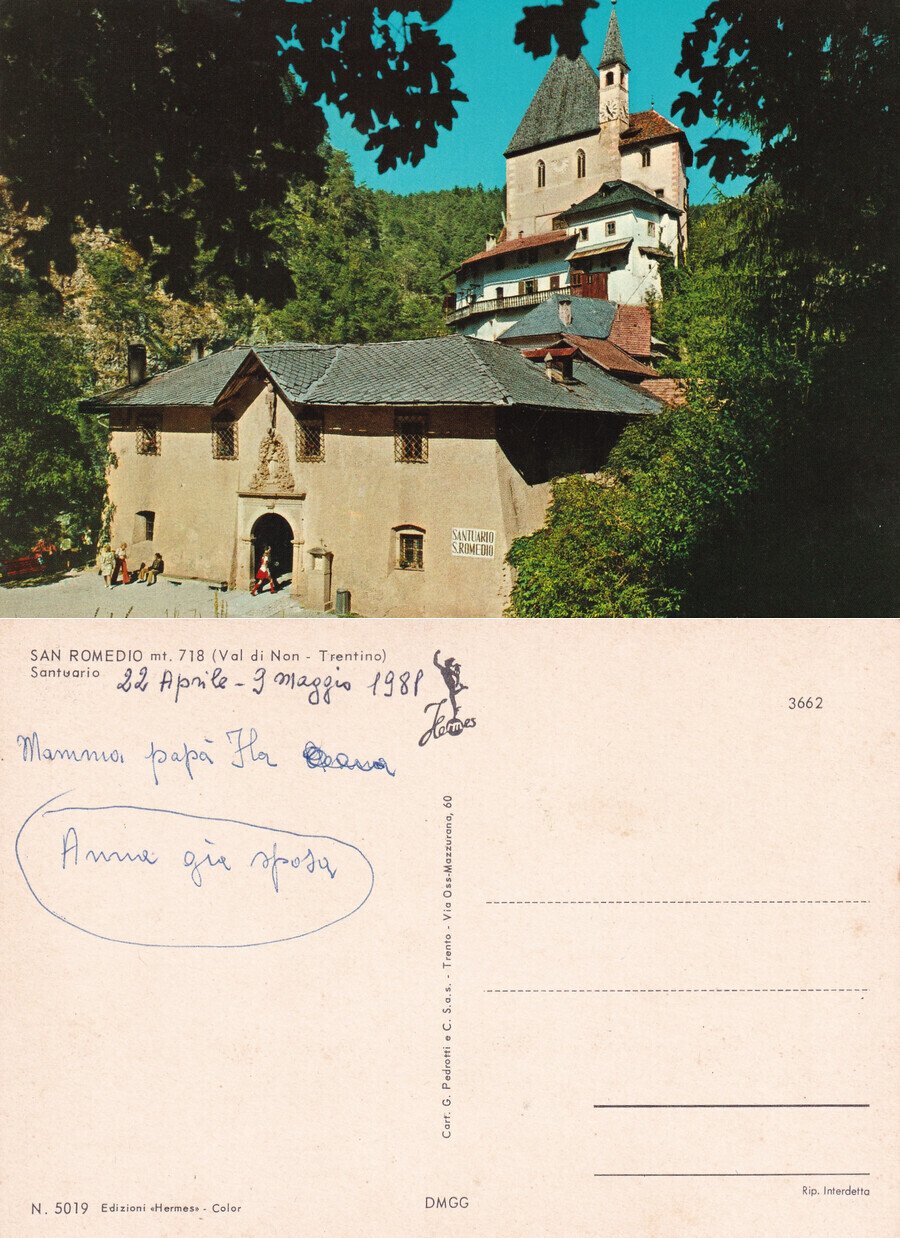 SANTUARIO
S. ROMEDIO
SAN ROMEDIO mt. 718 (Val di Non - Trentino)
Santuario
22 Aprile - 9 Maggio 1981
Hermes
3662
Mamma papà Ila
Anna già sposa
Cart. G. Pedrotti e C. S.a.s. - Trento - Via Oss-Mazzurana, 60
Rip. Interdetta
N. 5019 Edizioni «Hermes» - Color
DMGG